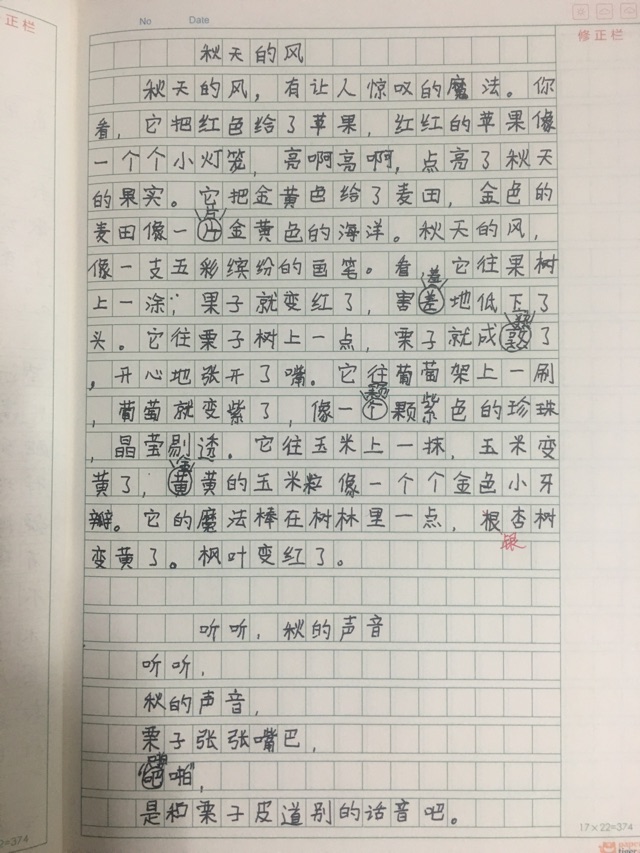 正栏
No Date
修正栏
秋天的风
秋天的风，有让人惊叹的魔法。你
看，它把红色给了苹果，红红的苹果像
一个个小灯笼，亮啊高啊，点亮了秋天
的果实。它把金黄色给了麦田，金色的
片
麦田像一片金黄色的海洋。秋天的风，
像一支五彩缤纷的画笔。看，它往果树
羞
上一涂；果子就变红了，害羞地低下了
头。它往栗子树上一点，栗子就成熟了
，开心地张开了嘴。它往葡萄架上一刷
颗
，葡萄就变紫了，像一个颗紫色的珍珠
，晶莹剔透。它往玉米上一抹，玉米变
金
黄了，黄黄的玉米粒像一个个金色小牙
瓣。它的魔法棒在树林里一点，根杏树
银
变黄了。枫叶变红了。
听听，秋的声音
听听，
秋的声音，
栗子张张嘴巴，
啪
“吧啪”，
是和栗子皮道别的话音吧。
2=374
17×22=374